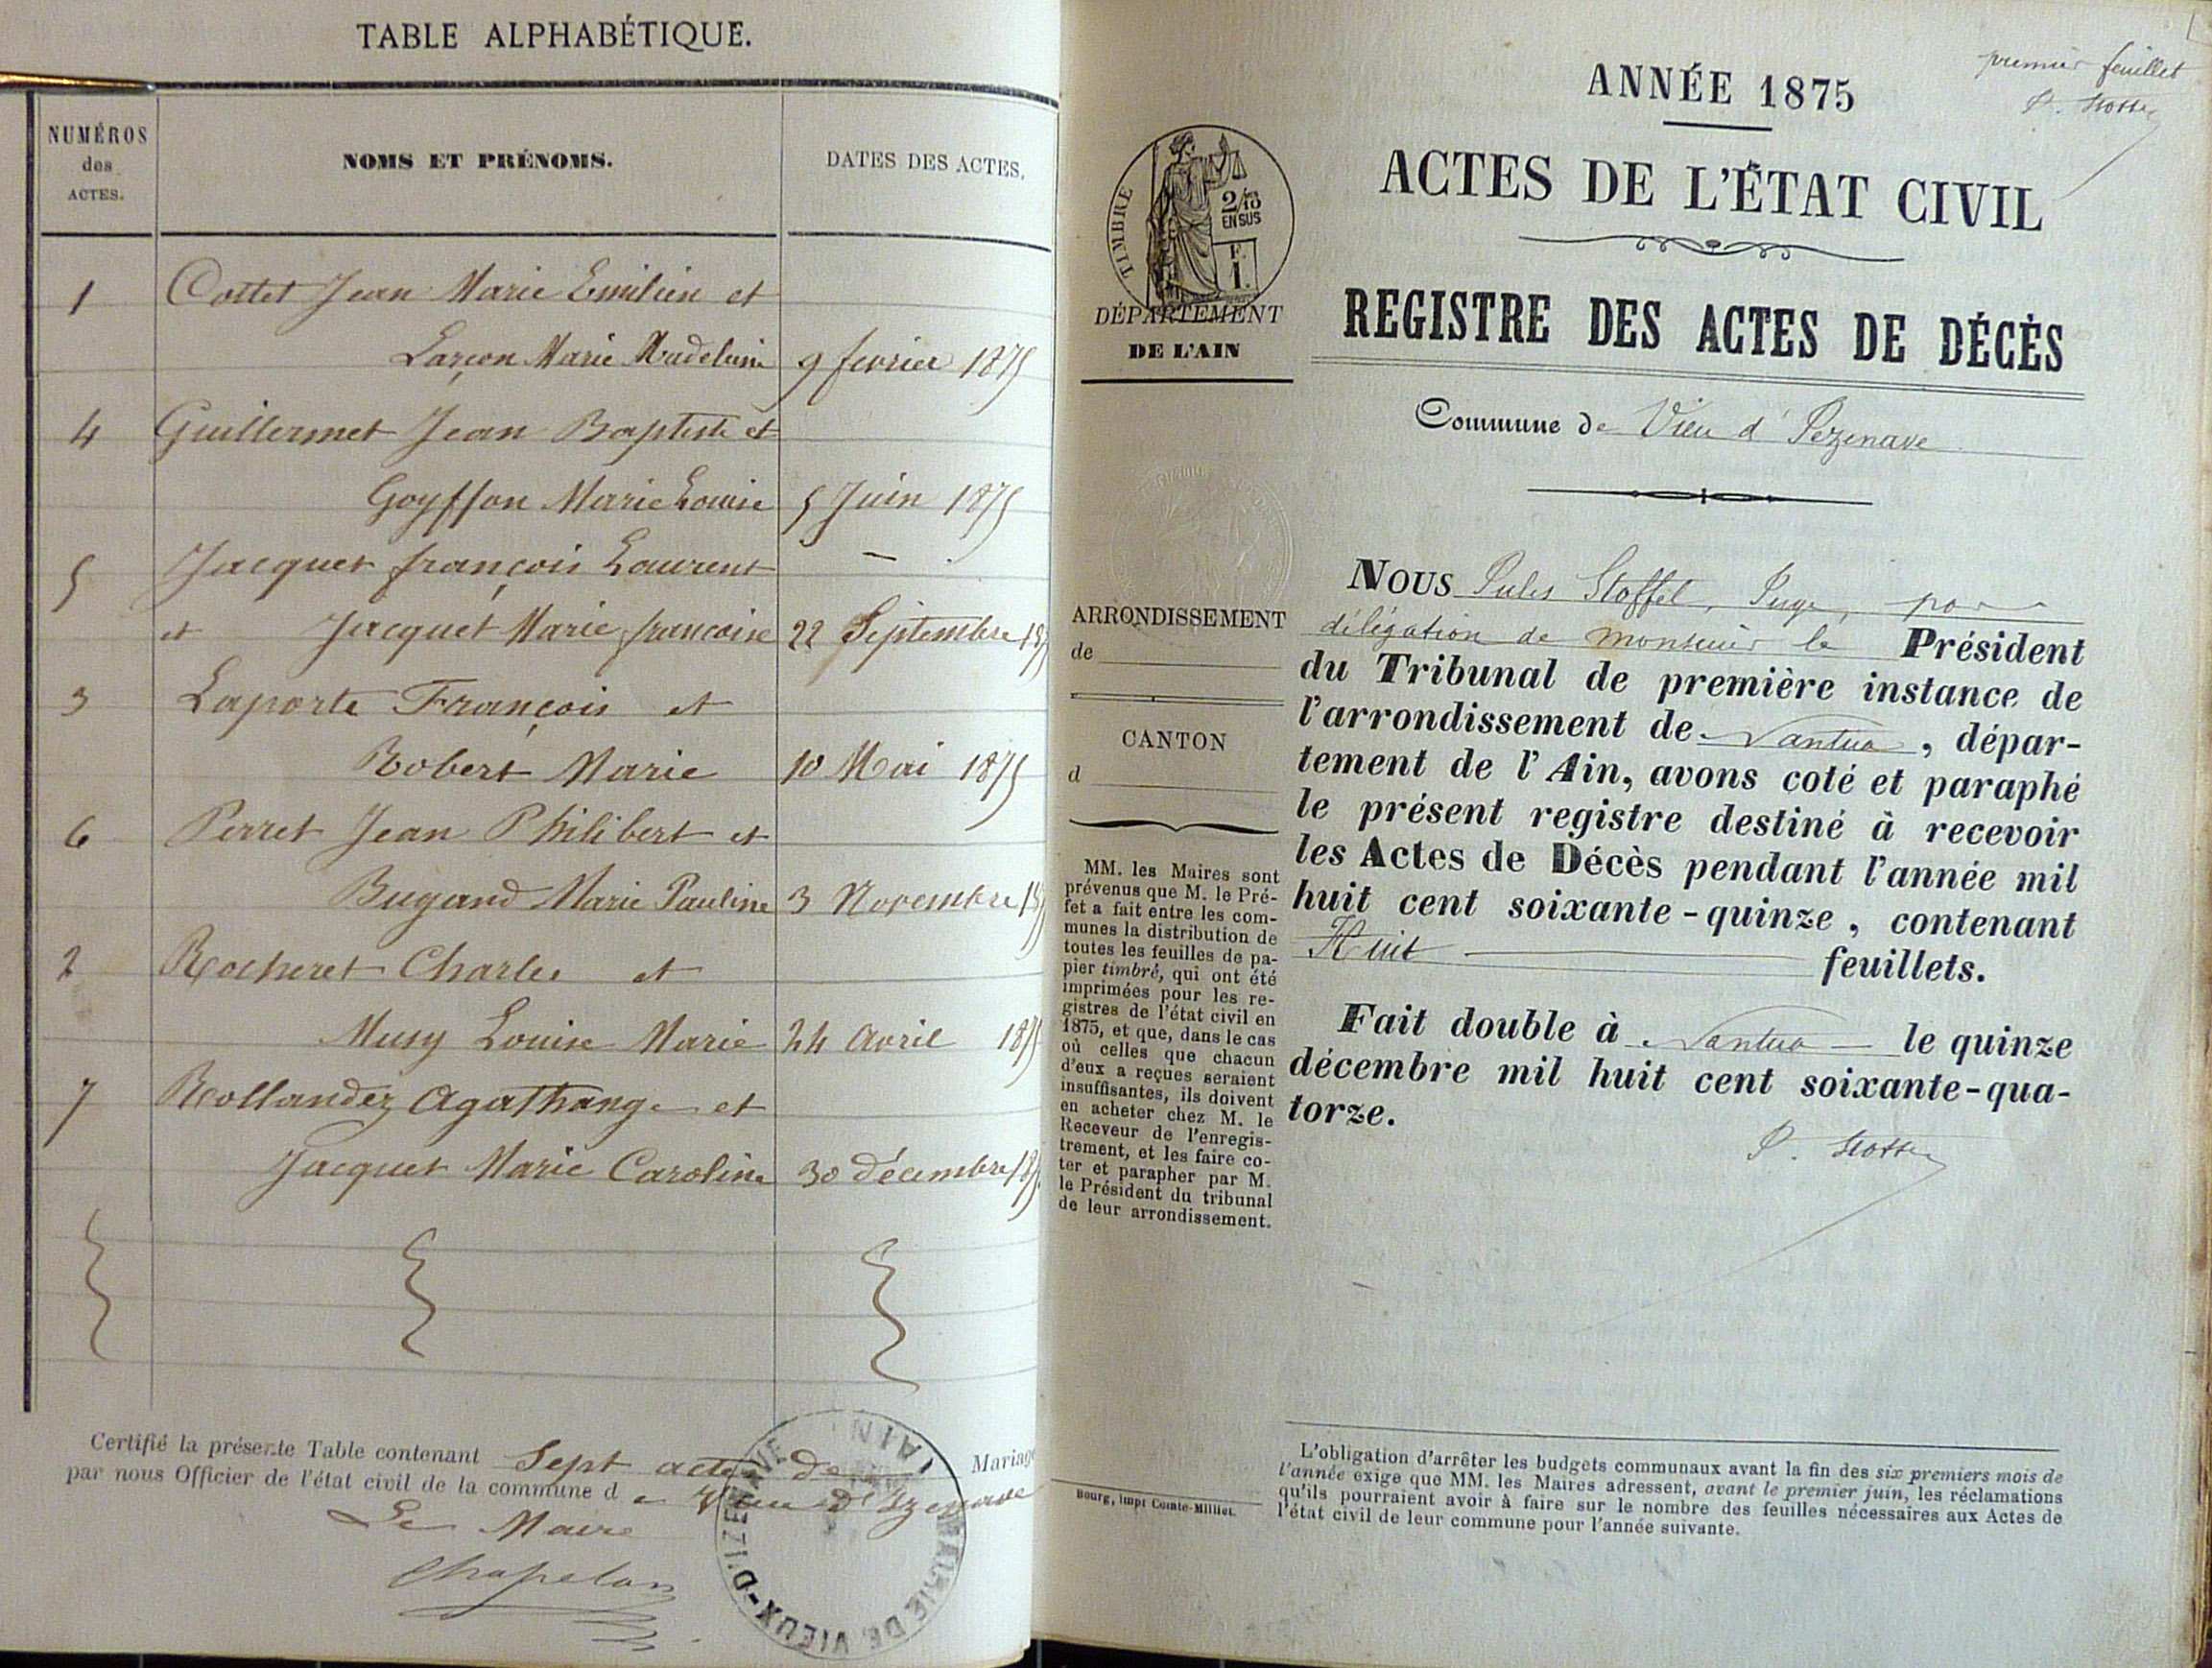 TABLE ALPHABÉTIQUE.
NUMÉROS
des
ACTES.
NOMS ET PRÉNOMS.
DATES DES ACTES.
1 Cottet Jean Marie Emilien et
Larçon Marie Madeleine 9 fevrier 1875
4 Guillermet Jean Baptiste et
Goyffon Marie Louise 5 Juin 1875
5 Jacquet françois Laurent —
et Jacquet Marie francoise 22 Septembre 187
3 Laporte François et
Robert Marie 10 Mai 1875
6 Perret Jean Philibert et
Bugand Marie Pauline 3 Novembre 18
2 Rocheret Charles et
Musy Louise Marie 24 Avril 187
7 Rollandez Agathange et
Jacquet Marie Caroline 30 décembre 187
Certifié la présente Table contenant Sept actes de Mariage
par nous Officier de l'état civil de la commune de Vieu d'Izenave
Le Maire
Chapelan
MAIRIE DE VIEUX-D'IZENAVE (AIN)
premier feuillet
ANNÉE 1875
ACTES DE L'ÉTAT CIVIL
REGISTRE DES ACTES DE DÉCÈS
TIMBRE
2/10
EN SUS
F.
1.
DÉPARTEMENT
DE L'AIN
Commune de Vieu d'Izenave
ARRONDISSEMENT
de
CANTON
d
MM. les Maires sont
prévenus que M. le Pré-
fet a fait entre les com-
munes la distribution de
toutes les feuilles de pa-
pier timbré, qui ont été
imprimées pour les re-
gistres de l'état civil en
1875, et que, dans le cas
où celles que chacun
d'eux a reçues seraient
insuffisantes, ils doivent
en acheter chez M. le
Receveur de l'enregis-
trement, et les faire co-
ter et parapher par M.
le Président du tribunal
de leur arrondissement.
NOUS Jules Stoffel, Juge, par
délégation de monsieur le Président
du Tribunal de première instance de
l'arrondissement de Nantua, dépar-
tement de l'Ain, avons coté et paraphé
le présent registre destiné à recevoir
les Actes de Décès pendant l'année mil
huit cent soixante-quinze, contenant
Huit feuillets.
Fait double à Nantua — le quinze
décembre mil huit cent soixante-qua-
torze.
Bourg, impr Comte-Milliet.
L'obligation d'arrêter les budgets communaux avant la fin des six premiers mois de
l'année exige que MM. les Maires adressent, avant le premier juin, les réclamations
qu'ils pourraient avoir à faire sur le nombre des feuilles nécessaires aux Actes de
l'état civil de leur commune pour l'année suivante.